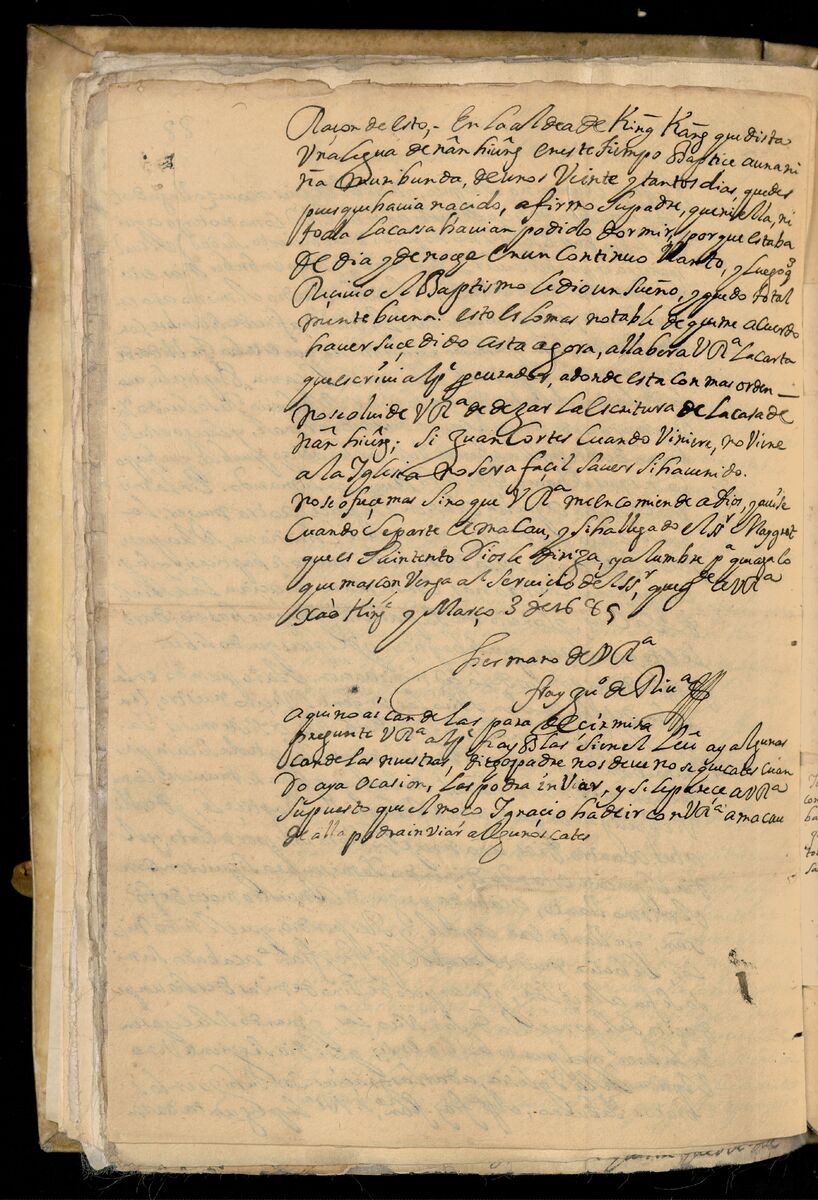 Raçon de esto,- En la aldea de King Kang que dista
Una legua de nân hiûng en este tiempo Baptice a una ni
ña muribunda, de unos Veinte y tantos dias, que des
pues que havia nacido, afirmo su padre, que ni ella, ni
toda la cassa havian podido dormir, porque estaba
de dia y de noçe en un Continuo llanto, y luego q̃
Ricivio el Baptismo le dio un sueño, y quedo total
mente buena: esto es lo mas notable de que me acuerdo
haver suçedido asta agora, alla bera V Rª la carta
que escrivi al pᵉ procurador, adonde esta con mas orden
no se olvide V Rª de dexar la escritura de la casa de
nân hiûng; Si Juan Cortes Cuando Viniere, no Viene
a la Iglesia no sera façil saver si ha venido.
no se ofreçe mas sino que V Rª me encomiende a Dios, y avise
Cuando se parte a macau, y si ha llegado el Sʳ
que es su intento Dios le diriga, y alumbre pª que aga lo
que mas con Venga al servicio de N Sʳ, que gᵈᵉ a V Rª
Xào King y Março 3 de 1685
hermano de V Rª
fray de Rivª
aqui no ai candelas para decir misa
pregunte V Rª al pᵉ fray Blas si en el ay algunas
candelas nuestras, dicho padre nos deve no se que cates cuan
do aya ocasion, las podra inViar, y si le parece a V Rª
supuesto que el moço Ignacio ha de ir con V Rª a macau
de alla podra inviar algunos cates